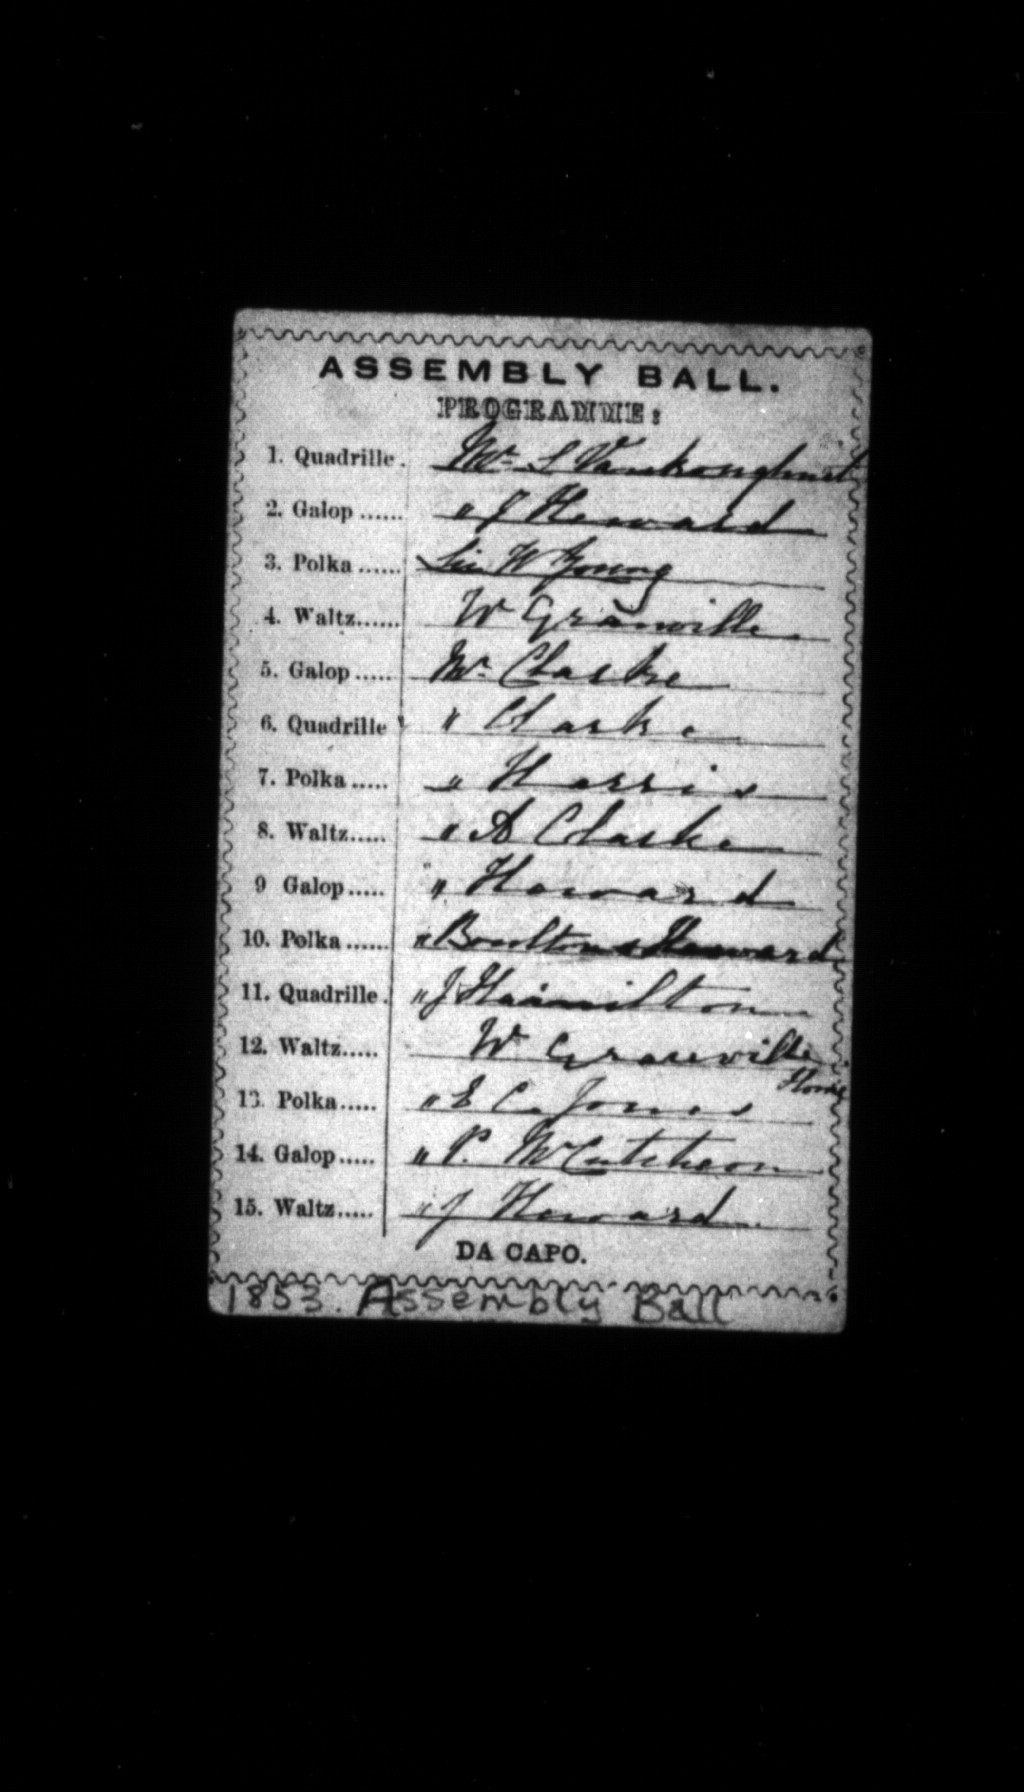 ASSEMBLY BALL.
PROGRAMME:
1. Quadrille. Mr. S Vankoughnet
2. Galop...... " J Howard
3. Polka...... Sir W Young
4. Waltz...... W Granville
5. Galop..... Mr. Clarke
6. Quadrille " Clarke
7. Polka..... " Harris
8. Waltz..... " A Clarke
9 Galop..... " Howard
10. Polka...... " Boulton Howard
11. Quadrille. " J Hamilton
12. Waltz..... W Granville
13. Polka..... " E C. Jones
14. Galop..... " P. McCutcheon
15. Waltz..... " J Howard
DA CAPO.
1853. Assembly Ball